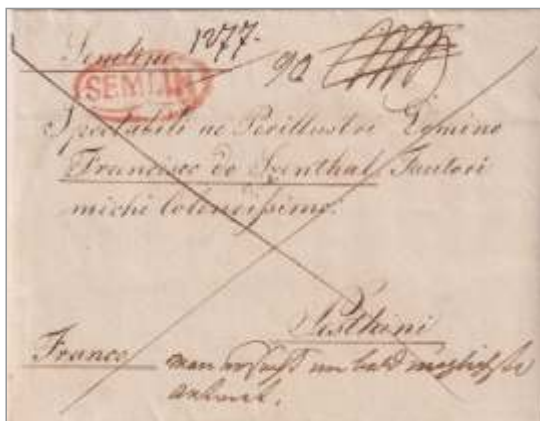 Semlino 1277.
SEMLIN
Spectabili ac Perillustri Domino
Francisco de Szenthal Fautori
michi Colendissimo.
Pesthini
Franco
man ersucht um bald möglichste
Antwort.